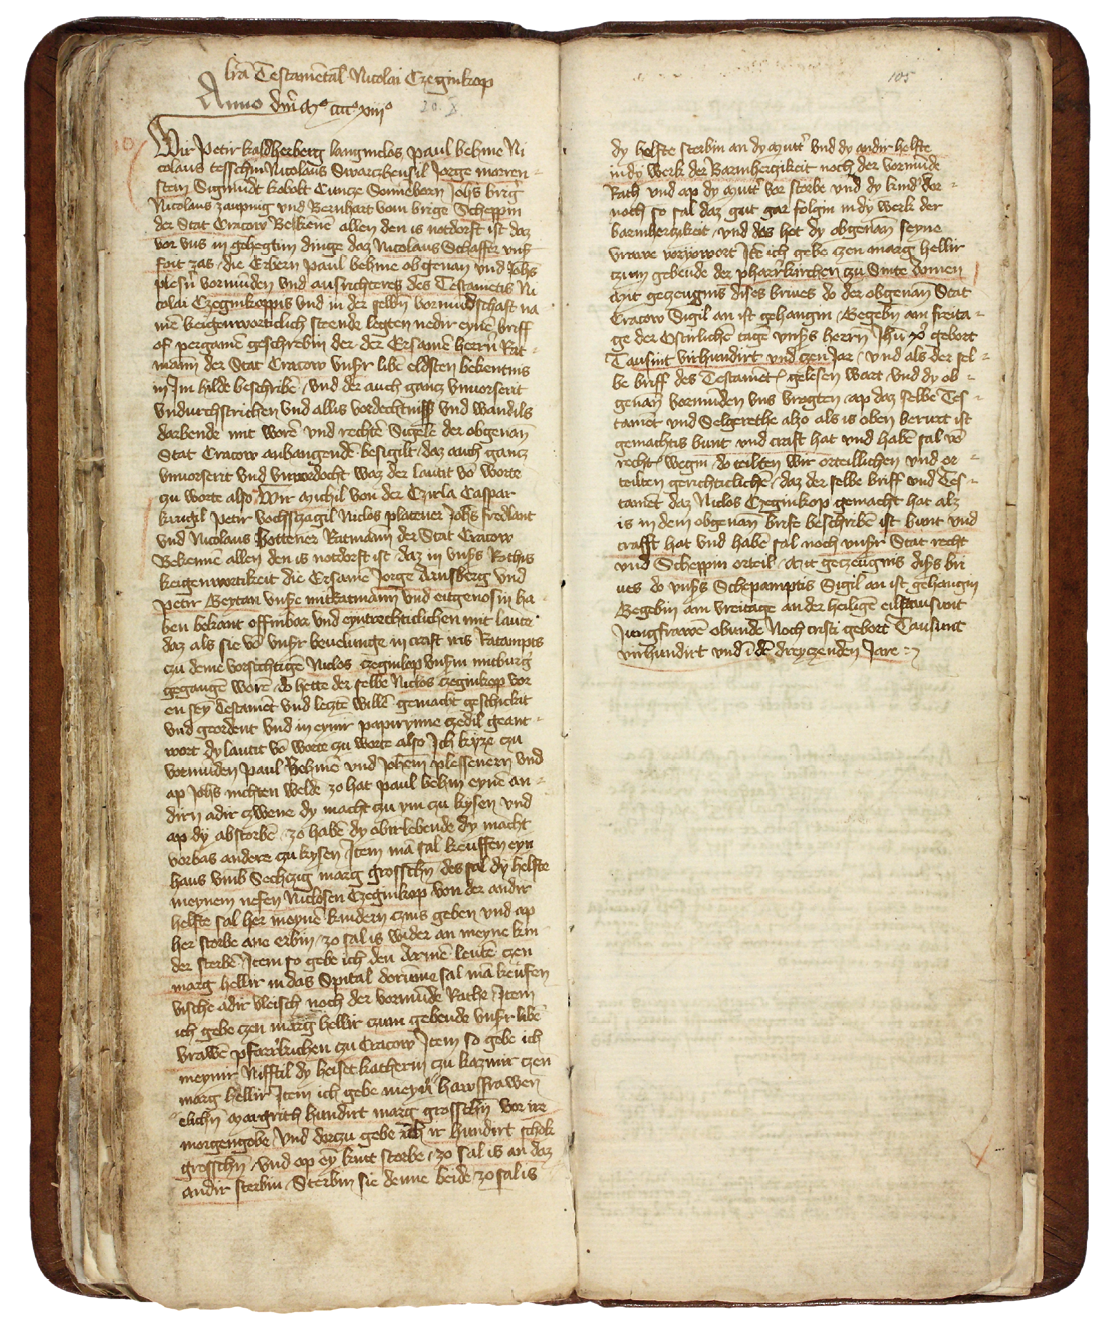 lr̃a Testame͂tal Nicolai Czeginkop
Anno dm̃i mº ccccº xiiiº
20. X
Wir Petir kaldherberg langniclos paul behme Ni
colaus tesschin Nicolaus Swarczheusil Jorge moren-
stern Sigmu͂dt kobolt Cuncze Sonneborn Joh̃s birg
Nicolaus zaupnig vnd Bernhart vom birge Scheppin
der Stat Cracow Bekenne͂ allen den is notdorft ist daz
vor vns in gehegtim dinge daz Nicolaus Schaffer vnß
foit zas, die Erbern paul behme obgenan vnd Joh̃s
plesñ vormu͂den vnd ausrichteres des Testametis Ni
colai Czeginkoppis vnd in der selbin vormundschaft na
me͂ keigenworticlich steende legten nedir eyne͂ briff
of pergame͂ geschrebin der der Ersame͂ herrn Rat-
mann͂ der Stat Cracow vnsir libe͂ eldsten bekentnis
in Jm hilde beschribe͂, vnd der auch gancz vnuorserit
vndurchstrichen vnd allis vordechtniß vnd wandils
darbende mit wore͂ vnd rechte͂ Sigele͂ der obgenan͂
Stat Cracow anhangende besigilt, daz auch gancz
vnuorserit vnd vnvordocht waz der lautit vo͂ worte
zu worte also Wir Michil von der Czirla Caspar
krugil petir vochsczagil Niclos platener Joh̃s fredlant
vnd Nicolaus Bottener Ratmann der Stat Cracow
Bekenne͂ allen den is notdorft ist, daz in vnß̃s Rothis
keigenwortikeit die Ersame͂ Jorge Arnsberg vnd
petir Beytan vnß̃e mitRatmann͂ vnd eitgenosin ha
ben bekant offinbar vnd eyntrechticlichen mit laute
daz als sie vo͂ vnsir beuelunge in craft iris Ratampts
czu deme vorsichtige͂ Niclos czeginkop vnß̃m mitburg̃
gegange͂ wore͂, do hette der selbe Niclos czeginkop vor
en sey͂ testament vnd lezte͂ wille͂ gemacht geschickit
vnd geordent vnd in eynir papirynne czedil geant-
wort dy lautit vo͂ worte czu worte also Jch kyze czu
vormu͂den paul Behme͂ vnd johe͂m plessenern vnd
ap Joh̃s nichten welde zo hat paul behm eyne͂ an-
dirn adir czwene dy macht czu ym czu kysen vnd
ap dy abstorbe͂, zo habe͂ dy obirlebende dy macht
vorbas andere czu kysen, Jtem ma͂ sal keuffen eyn
haus vmb Sechczig marg grossch͂n, des sal dy helfte
meynem nefen Niclosen Czeginkop von der andir
helfte sal her meyne͂ kindern czins geben vnd ap
her storbe ane erbin, zo sal is wider an meyne kin-
der sterbe͂, Jtem so gebe ich den Arme͂ leute͂ czen
marg hellir in das Spital doru͂me sal ma͂ keufen
vische adir vleisch noch der vormu͂de Rathe, Jtem
ich gebe czen marg hellir czum gebeude vnsir libe͂
vrawe͂ pfarr̃kirchen czu Cracow Jtem so gebe ich
meynir Nifftil dy heiset katherin czu kazmir czen
marg hellir Jtem ich gebe meynir hawsfrawen
elichn͂ Margrith hundirt marg grossch͂n vor ire
morgengobe, vnd dorczu gebe ich ir hundirt schok
grossch͂n, vnd op ey͂ kint storbe, zo sal is an daz
andir sterbin, Sterbin sie denne beide, zo sal is
105
dy helfte sterbin an dy mutt̃ vnd dy andir helfte
in dy werk der Barmherczikeit noch der vormu͂de
Rath vnd ap dy mutt̃ vor storbe vnd dy kind̃ dor-
noch so sal daz gut gar folgin in dy werk der
barmherczikeit, vnd das hot dy obgenan͂ seyne
vrawe voriowort Jte͂ ich gebe czen marg hellir
czum gebeude der pharr̃kirchen czu Sinte domen
Mit geczeugnis dises briues do der obgenan͂ Stat
Cracow Sigil an ist gehangin, Gegebn͂ am freita-
ge der Ostirlichen tage vnß̃s herrn͂ Jh̃u xp̃i gebort
Tausint virhundirt vnd czen Jar, vnd als der sel-
be briff des Testamet, gelesen wart, vnd dy ob-
genan͂ vormu͂den vns vrogten, ap daz selbe Tes-
tame͂t vnd Selgerethe also als is oben berurt ist
gemachtis bunt vnd craft hat vnd habe͂ sal vo͂
recht̃ wegin, do teilten wir orteillichen vnd er-
teilten gerichticliche͂, daz der selbe briff vnd Tes-
tame͂t daz Niclos Czeginkop gemacht hat alz
is in dem obgenan͂ brife beschribe͂ ist bunt vnd
crafft hat vnd habe͂ sal noch vnsir Stat recht
vnd Scheppin orteil, Mit geczeugnis diß̃s bri
ues do vnß̃s Schepamptis Sigil an ist gehangin
Gegebin am vreitage an der heilige͂ eilftausint
Jungfrawe͂ obunde Noch cristi gebort Tausint
virhundirt vnd i͂ de͂ dreyczenden Jare